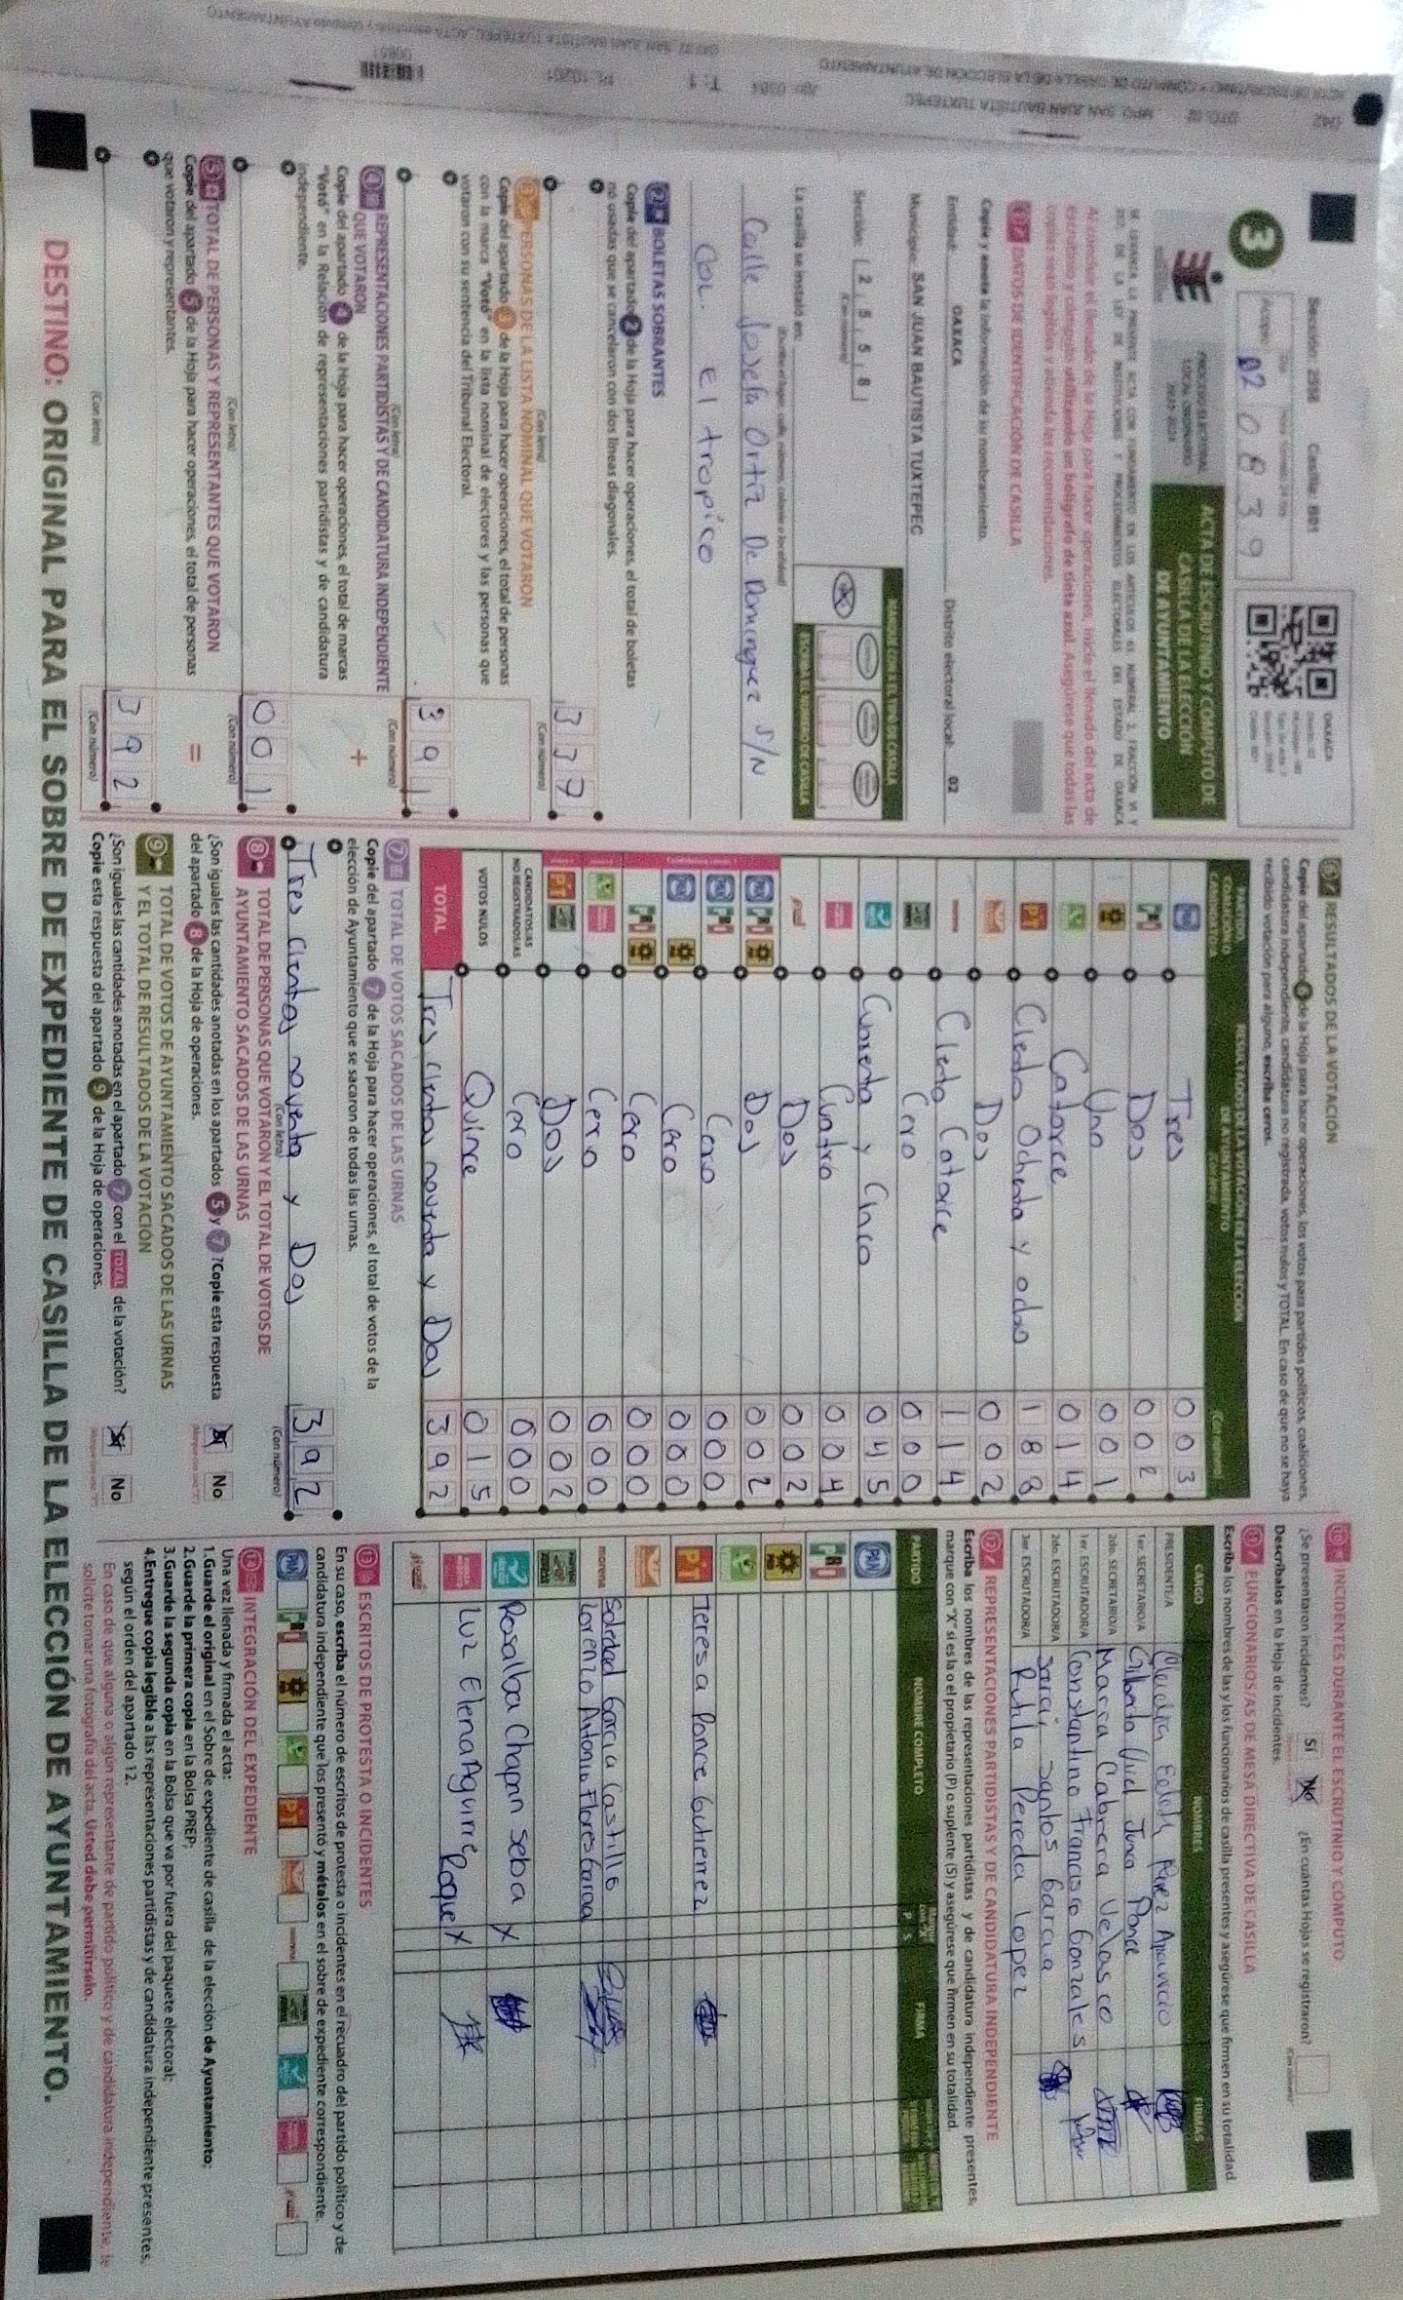 ACTA DE ESCRUTINIO Y CÓMPUTO DE CASILLA DE LA ELECCIÓN DE AYUNTAMIENTO
042 DTO. 02 MPO. SAN JUAN BAUTISTA TUXTEPEC
3
Sección: 2558 Casilla: B01
OAXACA
020839
PROCESO ELECTORAL
ACTA DE ESCRUTINIO Y CÓMPUTO DE
CASILLA DE LA ELECCIÓN
DE AYUNTAMIENTO
Al concluir el llenado de la Hoja para hacer operaciones, inicie el llenado del acta de
escrutinio y cómputo utilizando un bolígrafo de tinta azul. Asegúrese que todas las
copias sean legibles y atienda las recomendaciones.
DATOS DE IDENTIFICACIÓN DE CASILLA
Copie y anote la información de su nombramiento.
Entidad: OAXACA Distrito electoral local: 02
Municipio: SAN JUAN BAUTISTA TUXTEPEC
Sección: 2 5 5 8
(Con número)
MARQUE CON X EL TIPO DE CASILLA
ESCRIBA EL NÚMERO DE CASILLA
La casilla se instaló en:
Calle Josefa Ortiz De Dominguez S/N
COL. El tropico
2 BOLETAS SOBRANTES
Copie del apartado 2 de la Hoja para hacer operaciones, el total de boletas
no usadas que se cancelaron con dos líneas diagonales.
337
(Con letra) (Con número)
3 PERSONAS DE LA LISTA NOMINAL QUE VOTARON
Copie del apartado 3 de la Hoja para hacer operaciones, el total de personas
con la marca "Votó" en la lista nominal de electores y las personas que
votaron con su sentencia del Tribunal Electoral.
391
(Con letra) (Con número)
4 REPRESENTACIONES PARTIDISTAS Y DE CANDIDATURA INDEPENDIENTE
QUE VOTARON
Copie del apartado 4 de la Hoja para hacer operaciones, el total de marcas
"Votó" en la Relación de representaciones partidistas y de candidatura
independiente.
+
001
(Con letra) (Con número)
5 TOTAL DE PERSONAS Y REPRESENTANTES QUE VOTARON
Copie del apartado 5 de la Hoja para hacer operaciones, el total de personas
que votaron y representantes.
=
392
(Con letra) (Con número)
6 RESULTADOS DE LA VOTACIÓN
Copie del apartado 6 de la Hoja para hacer operaciones, los votos para partidos políticos, coaliciones,
candidatura independiente, candidatura no registrada, votos nulos y TOTAL. En caso de que no se haya
recibido votación para alguno, escriba ceros.
PARTIDO, COALICIÓN O CANDIDATO/A
RESULTADOS DE LA VOTACIÓN DE LA ELECCIÓN
DE AYUNTAMIENTO
(Con letra) (Con número)
PAN Tres 003
PRI Dos 002
PRD Uno 001
Catorce 014
PT Ciento Ochenta y ocho 188
Dos 002
morena Ciento Catorce 114
Cero 000
Cuarenta y Cinco 045
Cuatro 004
Dos 002
PAN PRI PRD Dos 002
PAN PRI Cero 000
PAN PRD Cero 000
PRI PRD Cero 000
Cero 000
PT Dos 002
CANDIDATOS/AS NO REGISTRADOS/AS Cero 000
VOTOS NULOS Quince 015
TOTAL Tres cientos noventa y Dos 392
7 TOTAL DE VOTOS SACADOS DE LAS URNAS
Copie del apartado 7 de la Hoja para hacer operaciones, el total de votos de la
elección de Ayuntamiento que se sacaron de todas las urnas.
Tres cientos noventa y Dos 392
(Con letra) (Con número)
8 TOTAL DE PERSONAS QUE VOTARON Y EL TOTAL DE VOTOS DE
AYUNTAMIENTO SACADOS DE LAS URNAS
¿Son iguales las cantidades anotadas en los apartados 5 y 7? Copie esta respuesta
del apartado 8 de la Hoja de operaciones.
Sí No
9 TOTAL DE VOTOS DE AYUNTAMIENTO SACADOS DE LAS URNAS
Y EL TOTAL DE RESULTADOS DE LA VOTACIÓN
¿Son iguales las cantidades anotadas en el apartado 7 con el TOTAL de la votación?
Copie esta respuesta del apartado 9 de la Hoja de operaciones.
Sí No
10 INCIDENTES DURANTE EL ESCRUTINIO Y CÓMPUTO
¿Se presentaron incidentes? Sí No ¿En cuántas Hojas se registraron?
Descríbalos en la Hoja de incidentes.
11 FUNCIONARIOS/AS DE MESA DIRECTIVA DE CASILLA
Escriba los nombres de las y los funcionarios de casilla presentes y asegúrese que firmen en su totalidad.
CARGO NOMBRES FIRMAS
PRESIDENTE/A Claudia Edith Perez Aparicio
1er. SECRETARIO/A Gilberto Uriel Juarez Ponce
2do. SECRETARIO/A Marca Cabrera Velasco
1er. ESCRUTADOR/A Constantino Francisco Gonzales
2do. ESCRUTADOR/A Sarai Santos Garcia
3er. ESCRUTADOR/A Rutila Pereda lopez
12 REPRESENTACIONES PARTIDISTAS Y DE CANDIDATURA INDEPENDIENTE
Escriba los nombres de las representaciones partidistas y de candidatura independiente presentes,
marque con "X" si es la o el propietario (P) o suplente (S) y asegúrese que firmen en su totalidad.
PARTIDO NOMBRE COMPLETO P S FIRMA
PAN
PRI
PRD
PT Teresa Ponce Gutierrez
morena Soledad Garcia Castillo
Lorenzo Antonio Flores Garcia
Rosalba Chapan Seba X
Luz Elena Aguirre Roque X
13 ESCRITOS DE PROTESTA O INCIDENTES
En su caso, escriba el número de escritos de protesta o incidentes en el recuadro del partido político y de
candidatura independiente que los presentó y métalos en el sobre de expediente correspondiente.
PAN PRI PRD PT morena
14 INTEGRACIÓN DEL EXPEDIENTE
Una vez llenada y firmada el acta:
1.Guarde el original en el Sobre de expediente de casilla de la elección de Ayuntamiento;
2.Guarde la primera copia en la Bolsa PREP;
3.Guarde la segunda copia en la Bolsa que va por fuera del paquete electoral;
4.Entregue copia legible a las representaciones partidistas y de candidatura independiente presentes,
según el orden del apartado 12.
En caso de que alguna o algún representante de partido político y de candidatura independiente, le
solicite tomar una fotografía del acta, Usted debe permitírselo.
DESTINO: ORIGINAL PARA EL SOBRE DE EXPEDIENTE DE CASILLA DE LA ELECCIÓN DE AYUNTAMIENTO.